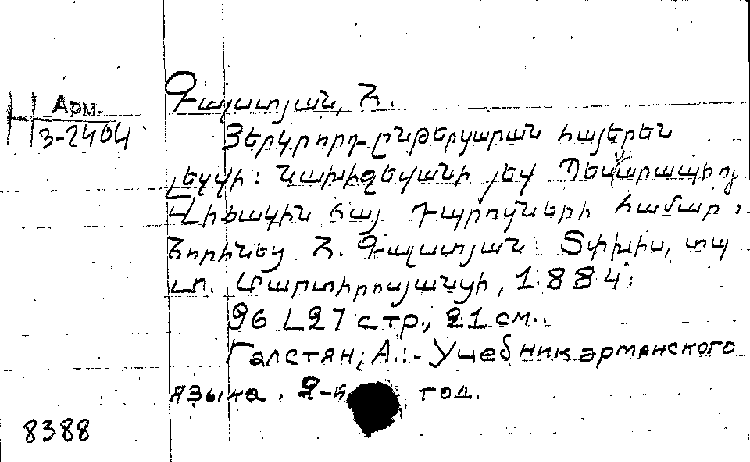 Арм.
H 3-2404
Գալստյան, Հ.
Յերկրորդ ընթերցարան հայերեն
լեզվի: Նախիջեվանի յեվ
Վիճակին հայ դպրոցների համար:
Հորինեց Հ. Գալստյան: Տփխիս, տպ
Մարտիրոսյանցի, 1884:
96 [2] стр., 21 см.
Галстян, А. - Учебник армянского
языка. 2-й год.
8388